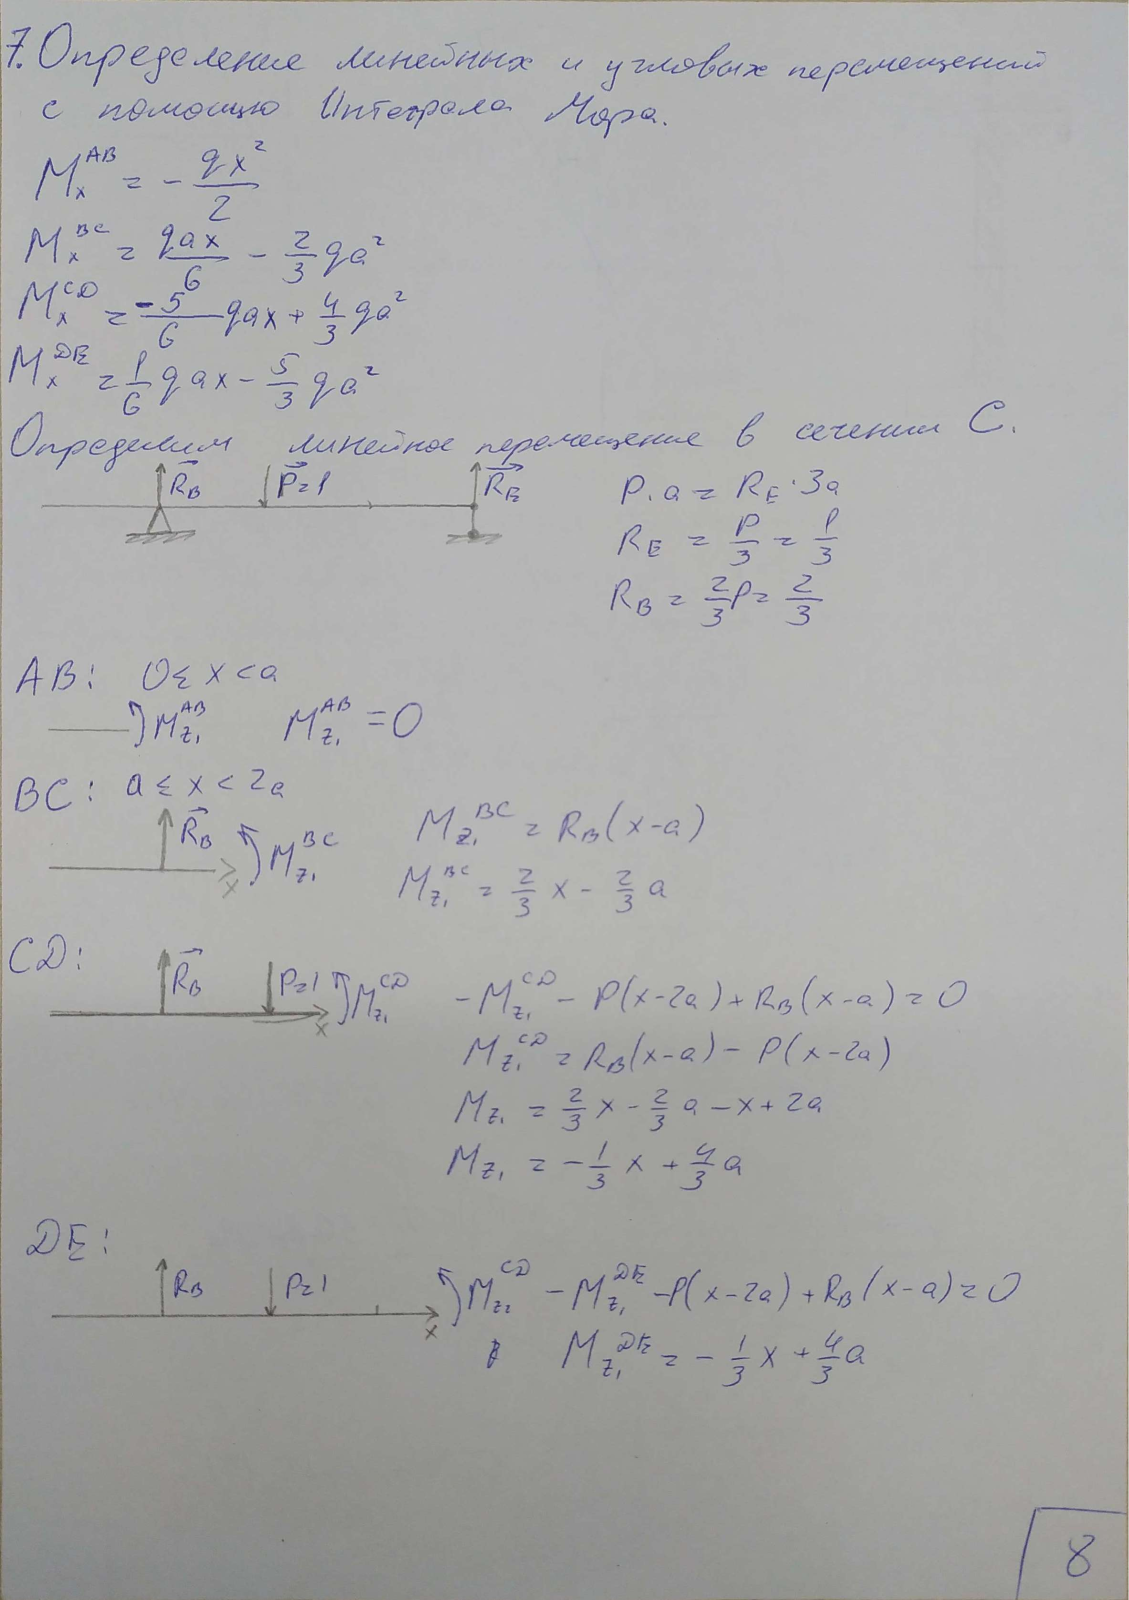 7. Определение линейных и угловых перемещений
с помощью Интеграла Мора.
M_x^{AB} = - \frac{qx^2}{2}
M_x^{BC} = \frac{qax}{6} - \frac{2}{3} qa^2
M_x^{CD} = \frac{-5}{6} qax + \frac{4}{3} qa^2
M_x^{DE} = \frac{1}{6} qax - \frac{5}{3} qa^2
Определим линейное перемещение в сечении C.
R_B P=1 R_E
P·a = R_E·3a
R_E = \frac{P}{3} = \frac{1}{3}
R_B = \frac{2}{3}P = \frac{2}{3}
AB: 0 ≤ x < a
M_{z_1}^{AB} M_{z_1}^{AB} = 0
BC: a ≤ x < 2a
R_B M_{z_1}^{BC} x
M_{z_1}^{BC} = R_B(x-a)
M_{z_1}^{BC} = \frac{2}{3} x - \frac{2}{3} a
CD:
R_B P=1 M_{z_1}^{CD} x
-M_{z_1}^{CD} - P(x-2a) + R_B(x-a) = 0
M_{z_1}^{CD} = R_B(x-a) - P(x-2a)
M_{z_1} = \frac{2}{3} x - \frac{2}{3} a - x + 2a
M_{z_1} = -\frac{1}{3} x + \frac{4}{3} a
DE:
R_B P=1 M_{z_2}^{CD} x
-M_{z_1}^{DE} - P(x-2a) + R_B(x-a) = 0
M_{z_1}^{DE} = -\frac{1}{3} x + \frac{4}{3} a
8